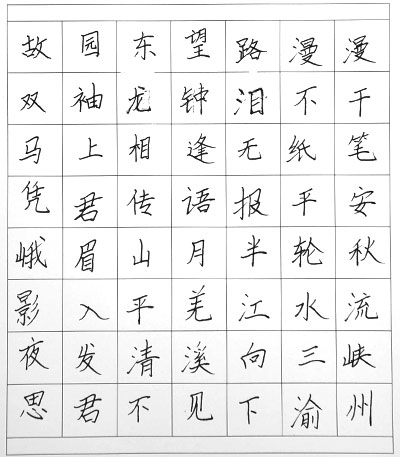 故园东望路漫漫
双袖龙钟泪不干
马上相逢无纸笔
凭君传语报平安
峨眉山月半轮秋
影入平羌江水流
夜发清溪向三峡
思君不见下渝州